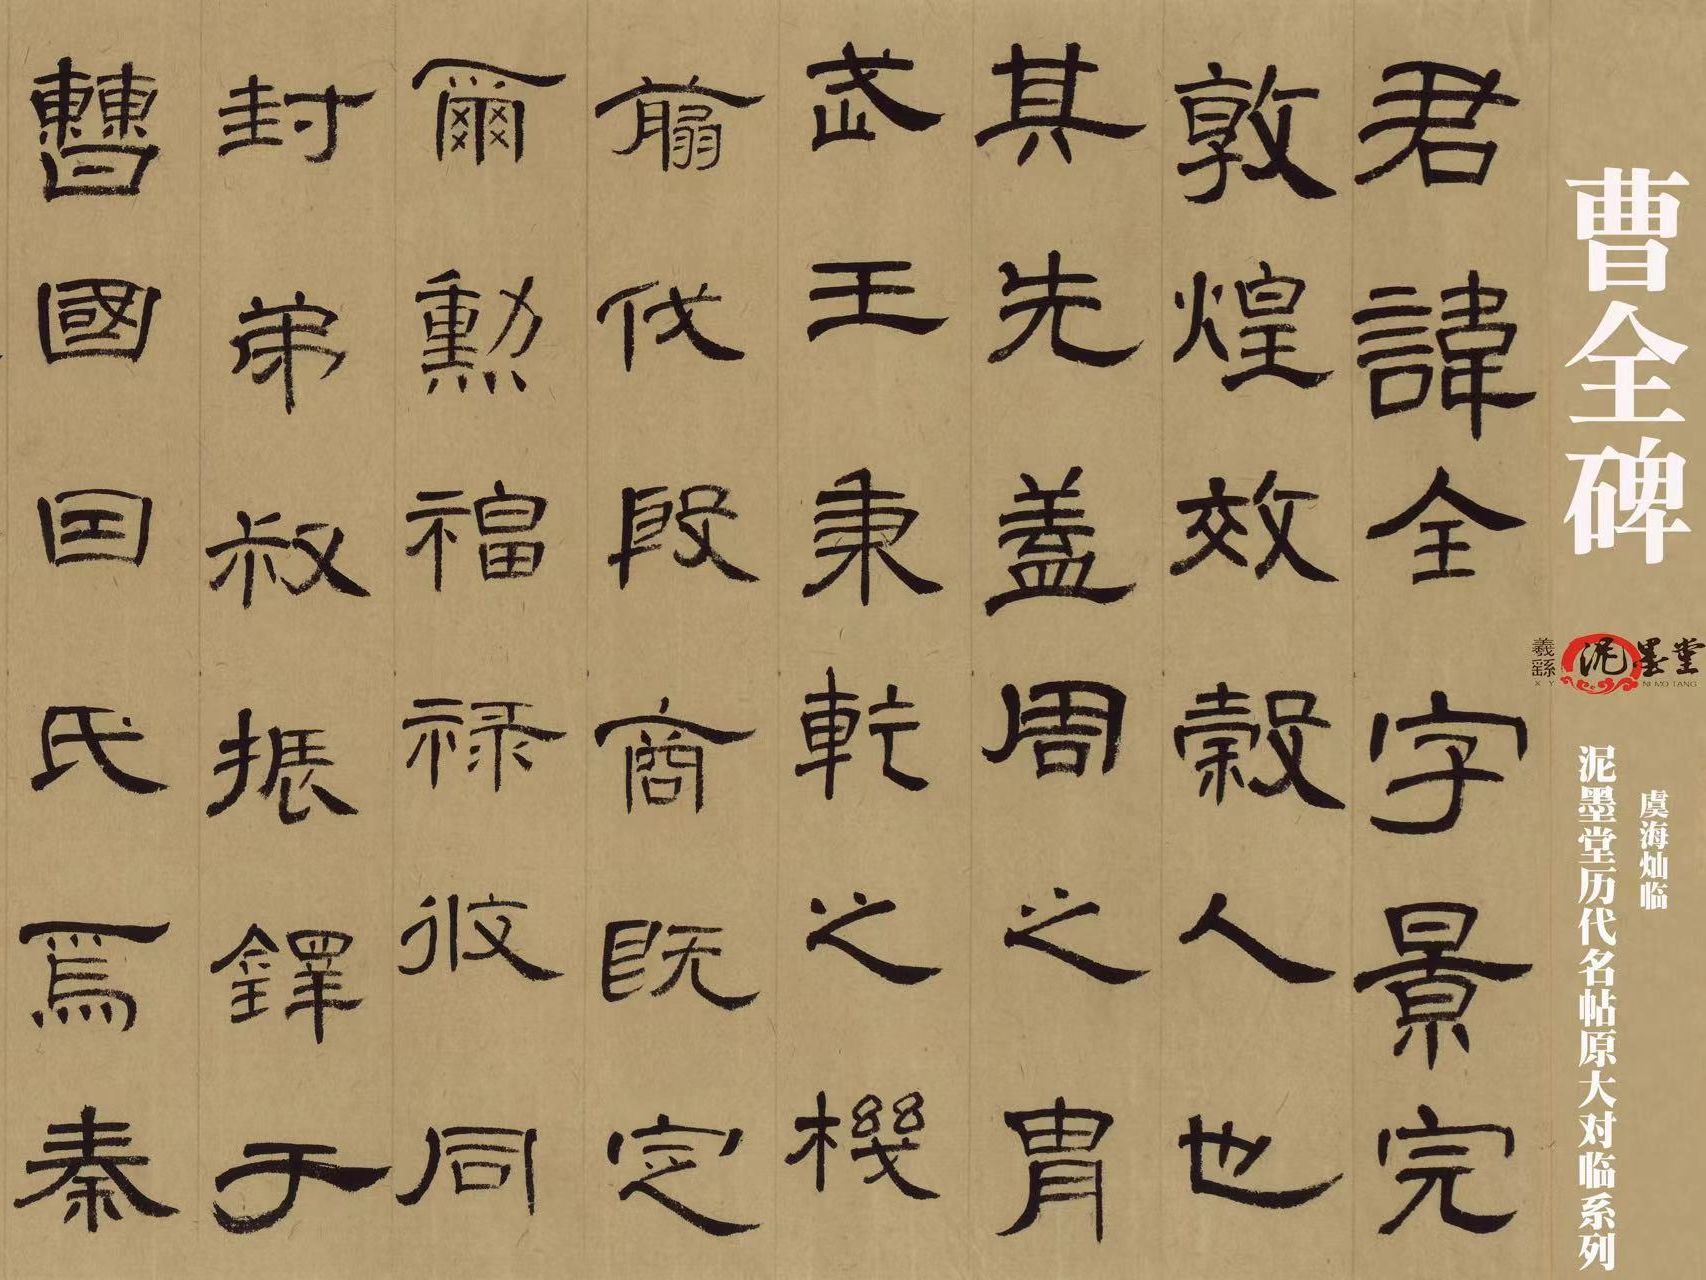 曹全碑
羲繇
X Y
泥墨堂
NI MO TANG
虞海灿临
泥墨堂历代名帖原大对临系列
君諱全字景完
敦煌效穀人也
其先蓋周之胄
武王秉乾之機
翦伐殷商既定
爾勳福祿攸同
封弟叔振鐸于
曹國因氏焉秦